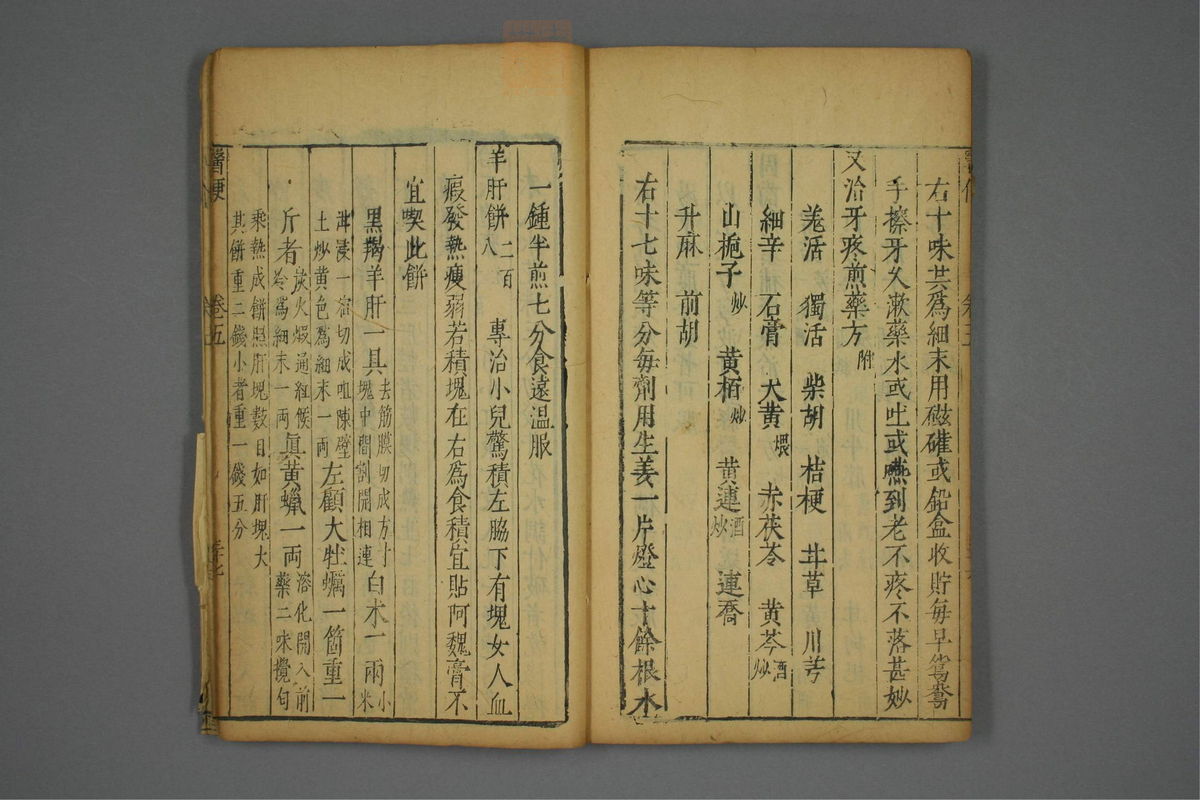 右十味共為細末用磁礶或鉛盒收貯每早
手擦牙乆漱藥水或吐或嚥到老不疼不落甚妙
又治牙疼煎藥方附
羗活 獨活 柴胡 桔梗 甘草 川芎
細辛 石膏 大黄煨 赤茯苓 黄芩酒炒
山梔子炒 黄栢炒 黄連酒炒 連喬
升麻 前胡
右十七味等分每劑用生姜一片燈心十餘根水
一鍾半煎七分食遠温服
羊肝餅二百八 專治小兒驚積左脇下有塊女人血
瘕發熱瘦弱若積塊在右為食積宜貼阿魏膏不
宜喫此餅
黑羯羊肝一具去筋膜切成方寸塊中間割開相連 白朮一兩小米
泔浸一宿切成咀陳壁土炒黄色為細末一兩 左顧大牡蠣一箇重一
斤者炭火煅通紅候冷為細末一兩 真黄蠟一両溶化開入前藥二味攪匀
乘熱成餅照肝塊數目如肝塊大其餅重二錢小者重一錢五分
醫便 卷五